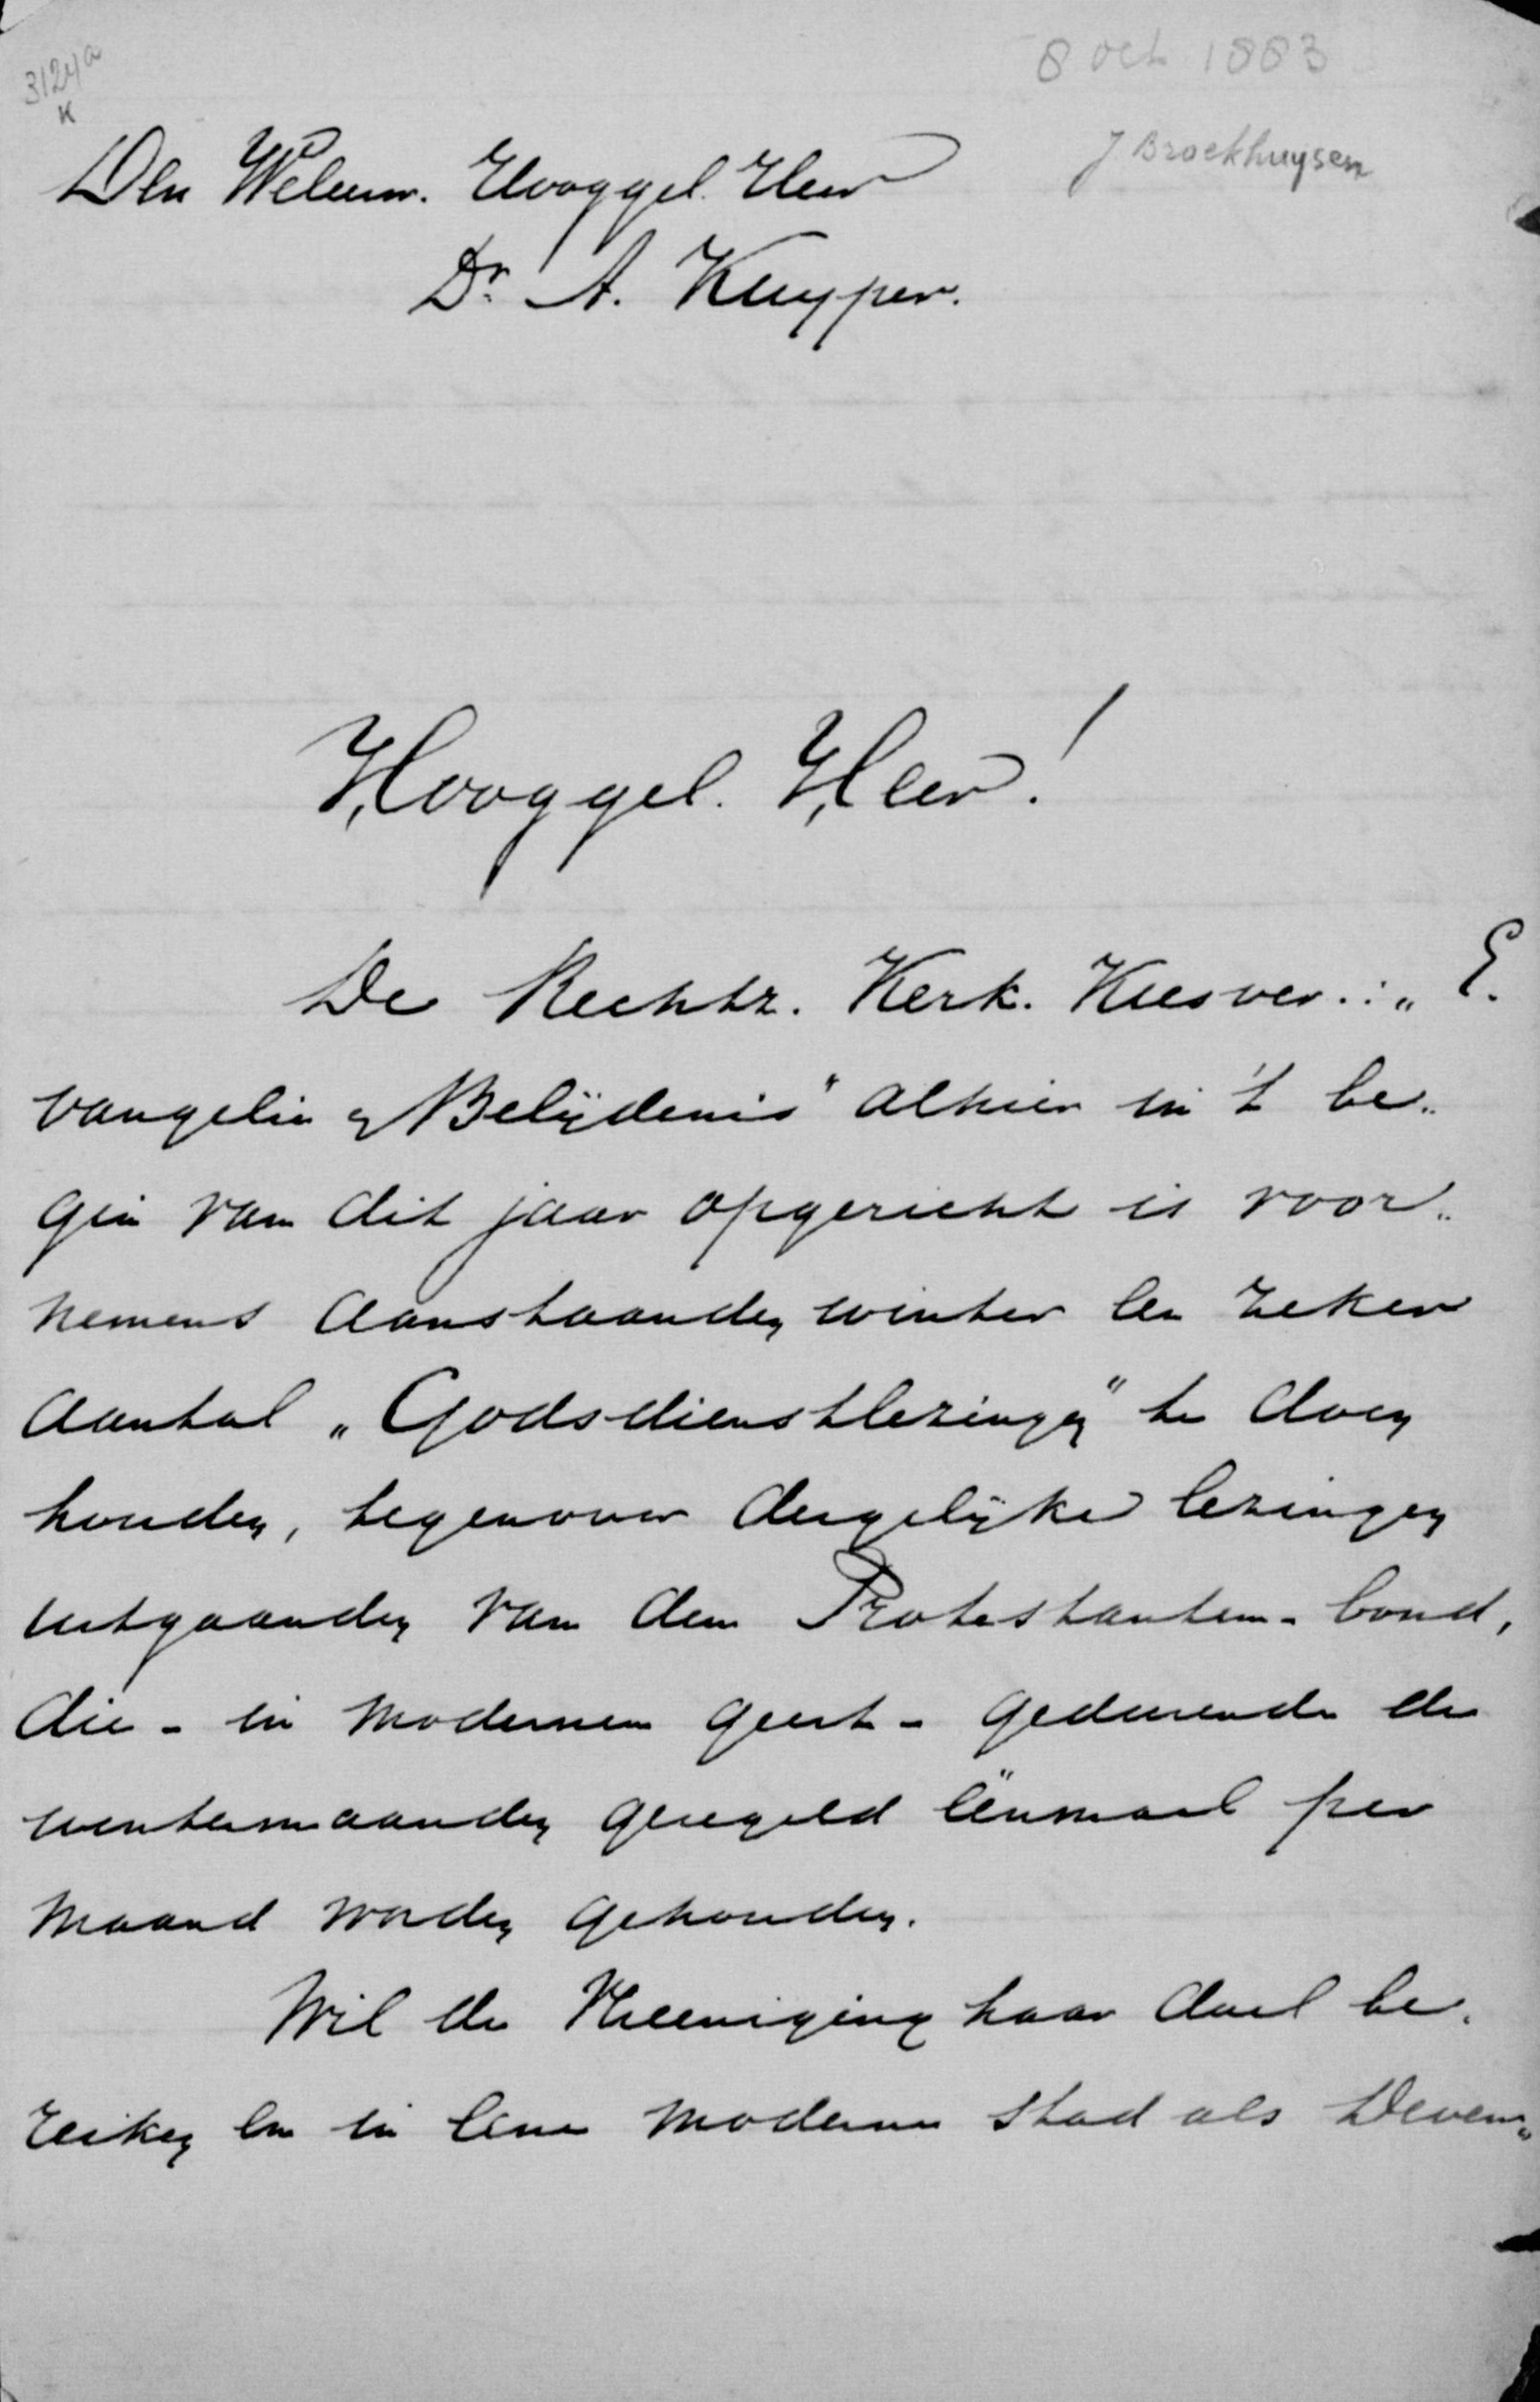 3124a
K
8 oct 1883
J. Broekhuysen
Den Weleerw. Hooggel. Heer
Dr. A. Kuyper.
Hooggel. Heer!
De Rechtz. Kerk. Kiesver.: „E.
vangelie en Belijdenis" alhier in 't be„
gin van dit jaar opgericht is voor„
nemens aanstaanden winter een zeker
aantal „Godsdienstlezingen" te doen
houden, tegenover dergelijke lezingen
uitgaanden van den Protestanten-bond,
die - in modernen geest - gedurende de
wintermaanden geregeld ëenmaal per
maand worden gehouden.
Wil de Vereeniging haar doel be„
reiken en in eene moderne stad als Deven„